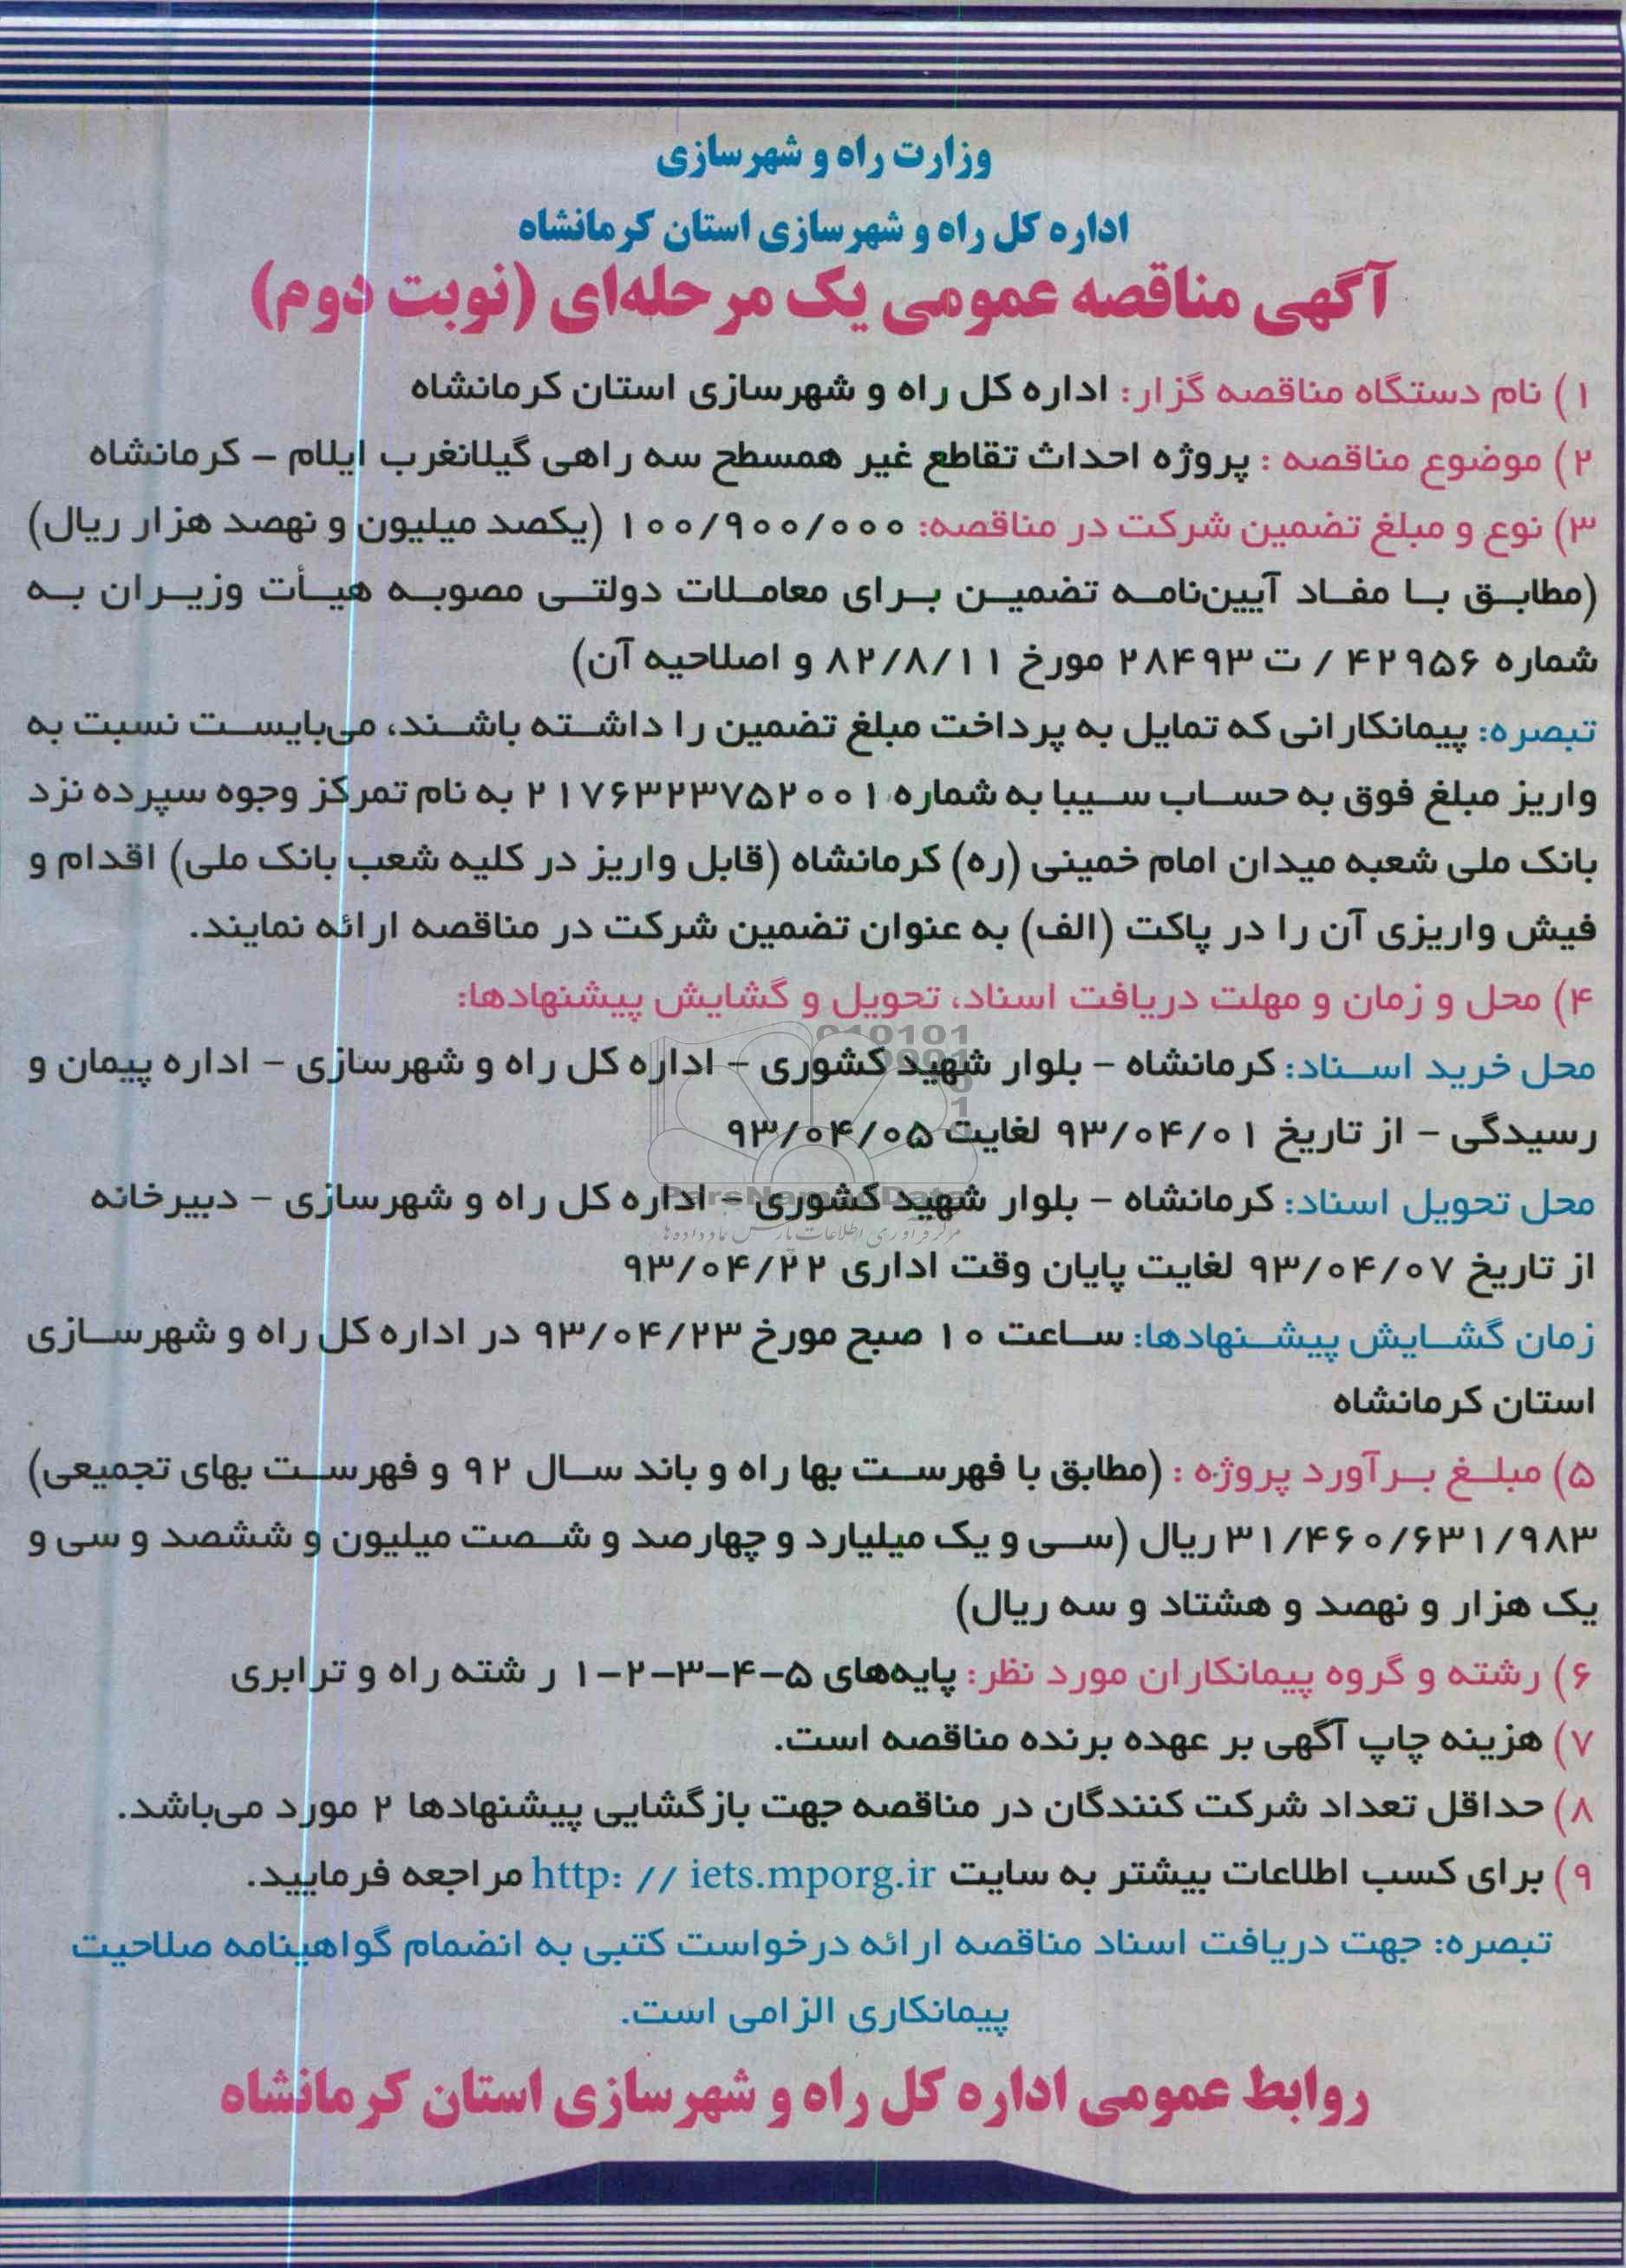 وزارت راه و شهرسازی
اداره کل راه و شهرسازی استان کرمانشاه
آگهی مناقصه عمومی یک مرحله‌ای (نوبت دوم)
۱) نام دستگاه مناقصه گزار: اداره کل راه و شهرسازی استان کرمانشاه
۲) موضوع مناقصه : پروژه احداث تقاطع غیر همسطح سه راهی گیلانغرب ایلام – کرمانشاه
۳) نوع و مبلغ تضمین شرکت در مناقصه: ۱۰۰/۹۰۰/۰۰۰ (یکصد میلیون و نهصد هزار ریال)
(مطابق با مفاد آیین‌نامه تضمین برای معاملات دولتی مصوبه هیأت وزیران به
شماره ۴۲۹۵۶ / ت ۲۸۴۹۳ مورخ ۸۲/۸/۱۱ و اصلاحیه آن)
تبصره: پیمانکارانی که تمایل به پرداخت مبلغ تضمین را داشته باشند، می‌بایست نسبت به
واریز مبلغ فوق به حساب سیبا به شماره ۲۱۷۶۳۲۳۷۵۲۰۰۱ به نام تمرکز وجوه سپرده نزد
بانک ملی شعبه میدان امام خمینی (ره) کرمانشاه (قابل واریز در کلیه شعب بانک ملی) اقدام و
فیش واریزی آن را در پاکت (الف) به عنوان تضمین شرکت در مناقصه ارائه نمایند.
۴) محل و زمان و مهلت دریافت اسناد، تحویل و گشایش پیشنهادها:
محل خرید اسناد: کرمانشاه – بلوار شهید کشوری – اداره کل راه و شهرسازی – اداره پیمان و
رسیدگی – از تاریخ ۹۳/۰۴/۰۱ لغایت ۹۳/۰۴/۰۵
محل تحویل اسناد: کرمانشاه – بلوار شهید کشوری – اداره کل راه و شهرسازی – دبیرخانه
ParsNamadData
مرکز فرآوری اطلاعات پارس نماد داده‌ها
از تاریخ ۹۳/۰۴/۰۷ لغایت پایان وقت اداری ۹۳/۰۴/۲۲
زمان گشایش پیشنهادها: ساعت ۱۰ صبح مورخ ۹۳/۰۴/۲۳ در اداره کل راه و شهرسازی
استان کرمانشاه
۵) مبلغ برآورد پروژه : (مطابق با فهرست بها راه و باند سال ۹۲ و فهرست بهای تجمیعی)
۳۱/۴۶۰/۶۳۱/۹۸۳ ریال (سی و یک میلیارد و چهارصد و شصت میلیون و ششصد و سی و
یک هزار و نهصد و هشتاد و سه ریال)
۶) رشته و گروه پیمانکاران مورد نظر: پایه‌های ۵-۴-۳-۲-۱ رشته راه و ترابری
۷) هزینه چاپ آگهی بر عهده برنده مناقصه است.
۸) حداقل تعداد شرکت کنندگان در مناقصه جهت بازگشایی پیشنهادها ۲ مورد می‌باشد.
۹) برای کسب اطلاعات بیشتر به سایت http: // iets.mporg.ir مراجعه فرمایید.
تبصره: جهت دریافت اسناد مناقصه ارائه درخواست کتبی به انضمام گواهینامه صلاحیت
پیمانکاری الزامی است.
روابط عمومی اداره کل راه و شهرسازی استان کرمانشاه